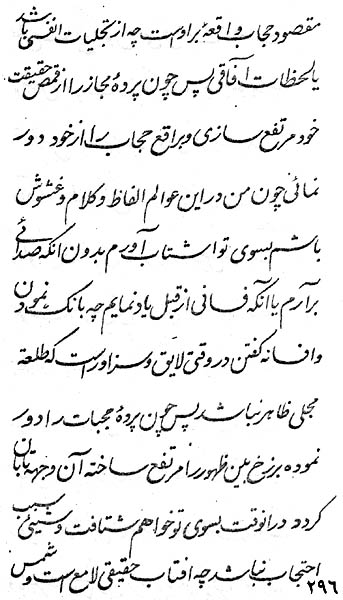 مقصود حجاب واقعهٔ بر اوست چه از تجلیات انفسی باشد
یا لحظات آفاقی پس چون پردهٔ مجاز را از قمص حقیقت
خود مرتفع سازی و براقع حجاب را از خود دور
نمائی چون من در این عوالم الفاظ و کلام و غشوش
باشم بسوی تو اشتاب آورم بدون آنکه صدائی
برآرم یا آنکه فسانی از قبل یاد نمایم چه بانک نمودن
و افسانه گفتن در وقتی لایق و سزاور است که طلعة
مجلی ظاهر نباشد پس چون پردهٔ محجبات را دور
نموده برزخ بین ظهور را مرتفع ساخته آن وجهه تابان
کرده در انوقت بسوی تو خواهم شتافت و شیئی سبب
احتجاب نباشد چه افتاب حقیقی لامع است و شمس
۲۹۶